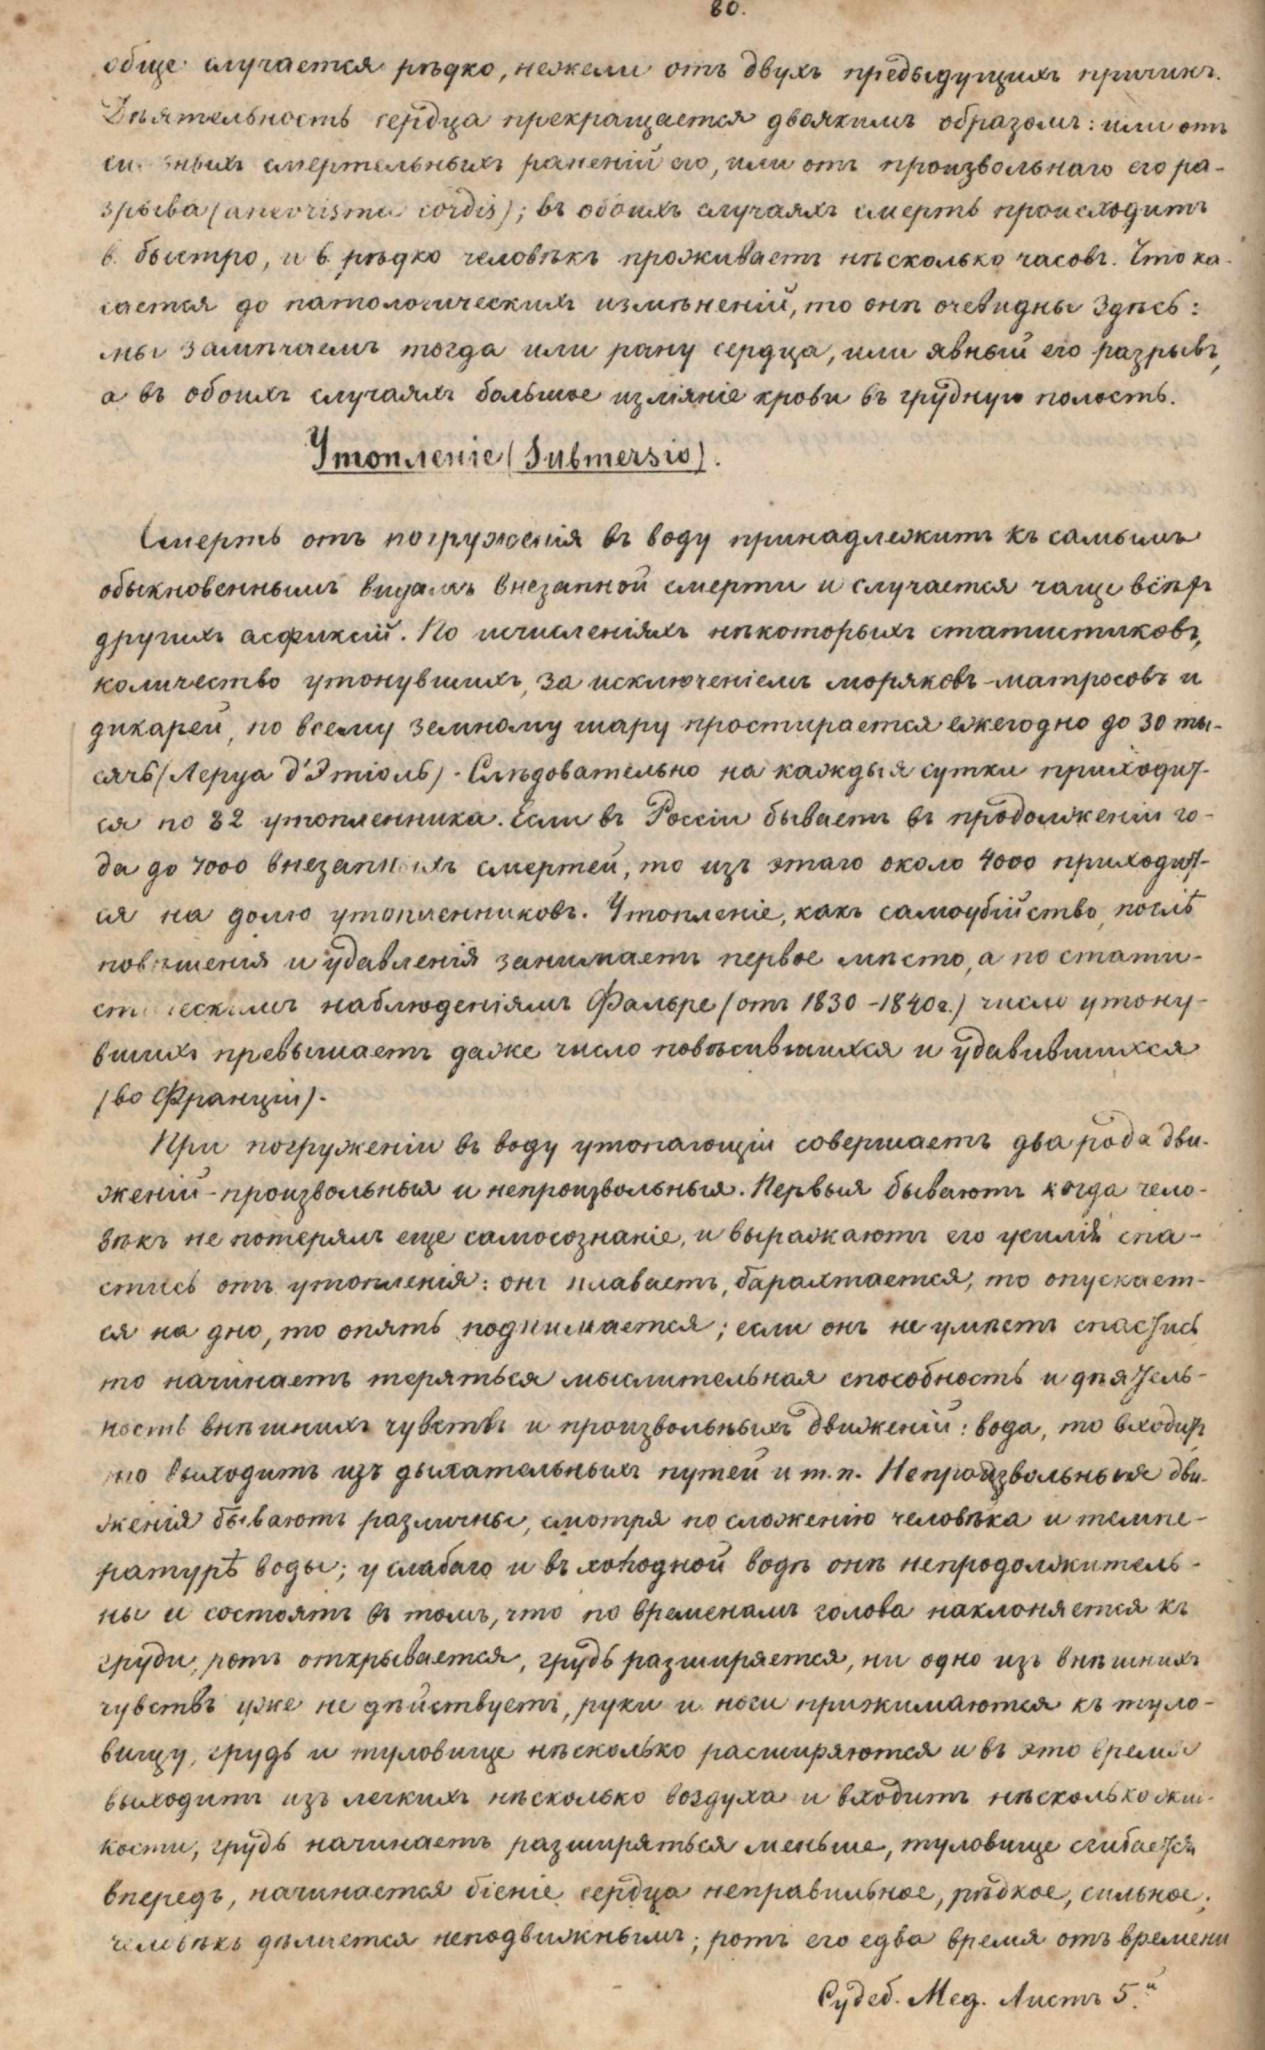 80.
обще случается рѣдко, нежели отъ двухъ предыдущихъ причинъ.
Дѣятельность сердца прекращается двоякимъ образомъ: или отъ
смертельныхъ раненій его, или отъ произвольнаго его ра-
зрыва (anevrisma cordis); въ обоихъ случаяхъ смерть происходитъ
в. быстро, и в. рѣдко человѣкъ проживаетъ нѣсколько часовъ. Что ка-
сается до патологическихъ измѣненій, то онѣ очевидны здѣсь:
мы замѣчаемъ тогда или рану сердца, или явный его разрывъ,
а въ обоихъ случаяхъ большое изліяніе крови въ грудную полость.
Утопленіе (Submersio).
Смерть отъ погруженія въ воду принадлежитъ къ самымъ
обыкновеннымъ видамъ внезапной смерти и случается чаще всѣхъ
другихъ асфиксій. По исчисленіяхъ нѣкоторыхъ статистиковъ,
количество утонувшихъ, за исключеніемъ моряковъ-матросовъ и
дикарей, по всему земному шару простирается ежегодно до 30 ты-
сячъ (Леруа д'Этіоль). Слѣдовательно на каждыя сутки приходит-
ся по 82 утопленника. Если въ Россіи бываетъ въ продолженіи го-
да до 7000 внезапныхъ смертей, то изъ этаго около 4000 приходит-
ся на долю утопленниковъ. Утопленіе, какъ самоубійство, послѣ
повѣшенія и удавленія занимаетъ первое мѣсто, а по стати-
стическимъ наблюденіямъ Фальре (отъ 1830-1840г.) число утону-
вшихъ превышаетъ даже число повѣсившихся и удавившихся
(во Франціи).
При погруженіи въ воду утопающій совершаетъ два рода дви-
женій - произвольныя и непроизвольныя. Первыя бываютъ когда чело-
вѣкъ не потерялъ еще самосознаніе, и выражаютъ его усилія спа-
стись отъ утопленія: онъ плаваетъ, барахтается, то опускает-
ся на дно, то опять поднимается; если онъ не умѣетъ спастись
то начинаетъ теряться мыслительная способность и дѣятель-
ность внѣшнихъ чувствъ и произвольныхъ движеній: вода, то входитъ
то выходитъ изъ дыхательныхъ путей и т.п. Непроизвольныя дви-
женія бываютъ различны, смотря по сложенію человѣка и темпе-
ратурѣ воды; у слабаго и въ холодной водѣ онѣ непродолжитель-
ны и состоятъ въ томъ, что по временамъ голова наклоняется къ
груди, ротъ открывается, грудь разширяется, ни одно изъ внѣшнихъ
чувствъ уже не дѣйствуетъ, руки и ноги прижимаются къ туло-
вищу, грудь и туловище нѣсколько расширяются и въ это время
выходитъ изъ легкихъ нѣсколько воздуха и входитъ нѣсколько жид-
кости, грудь начинаетъ разширяться меньше, туловище сгибается
впередъ, начинается біеніе сердца неправильное, рѣдкое, сильное;
человѣкъ дѣлается неподвижнымъ; ротъ его едва время отъ времени
Судеб. Мед. Листъ 5.й